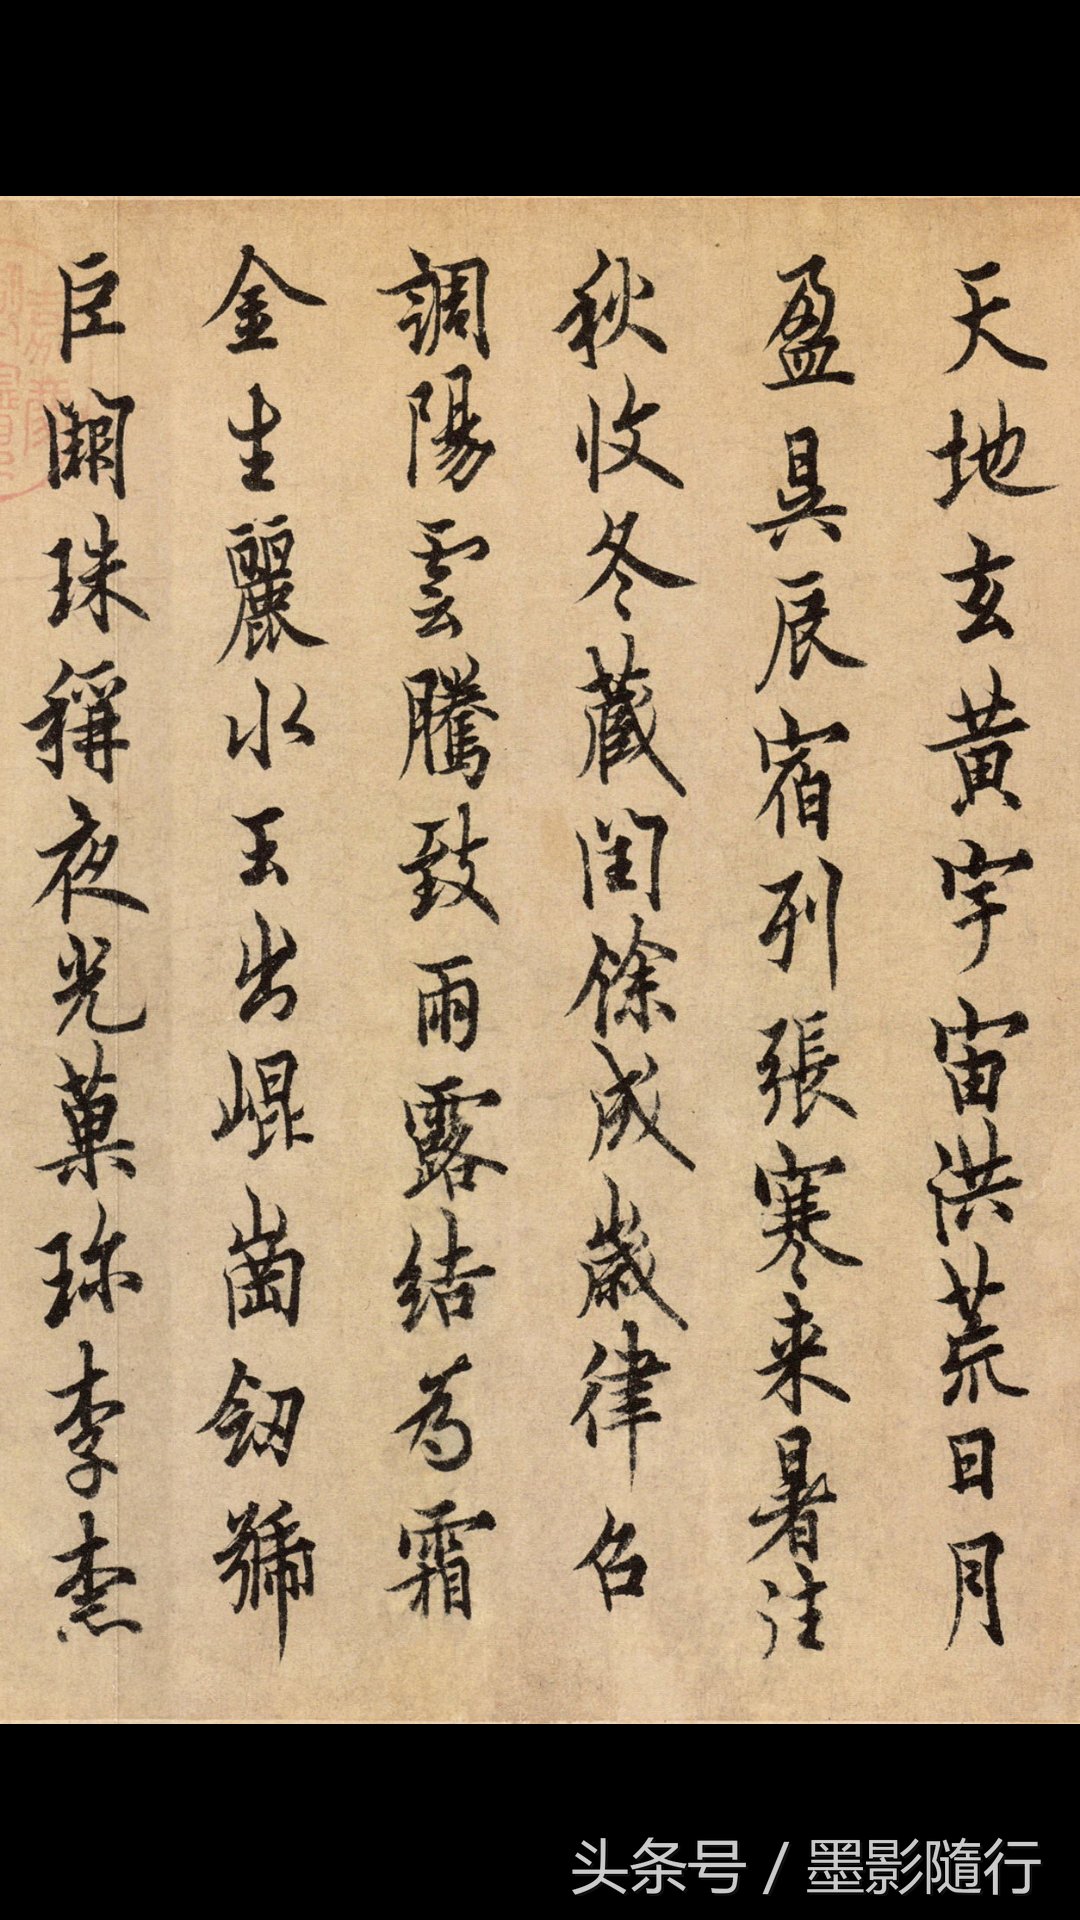 天地玄黄宇宙洪荒日月
盈昃辰宿列張寒来暑往
秋收冬藏閏餘成歲律吕
調陽雲騰致雨露結為霜
金生麗水玉出崐崗劒號
巨闕珠稱夜光菓珎李柰
头条号 / 墨影随行